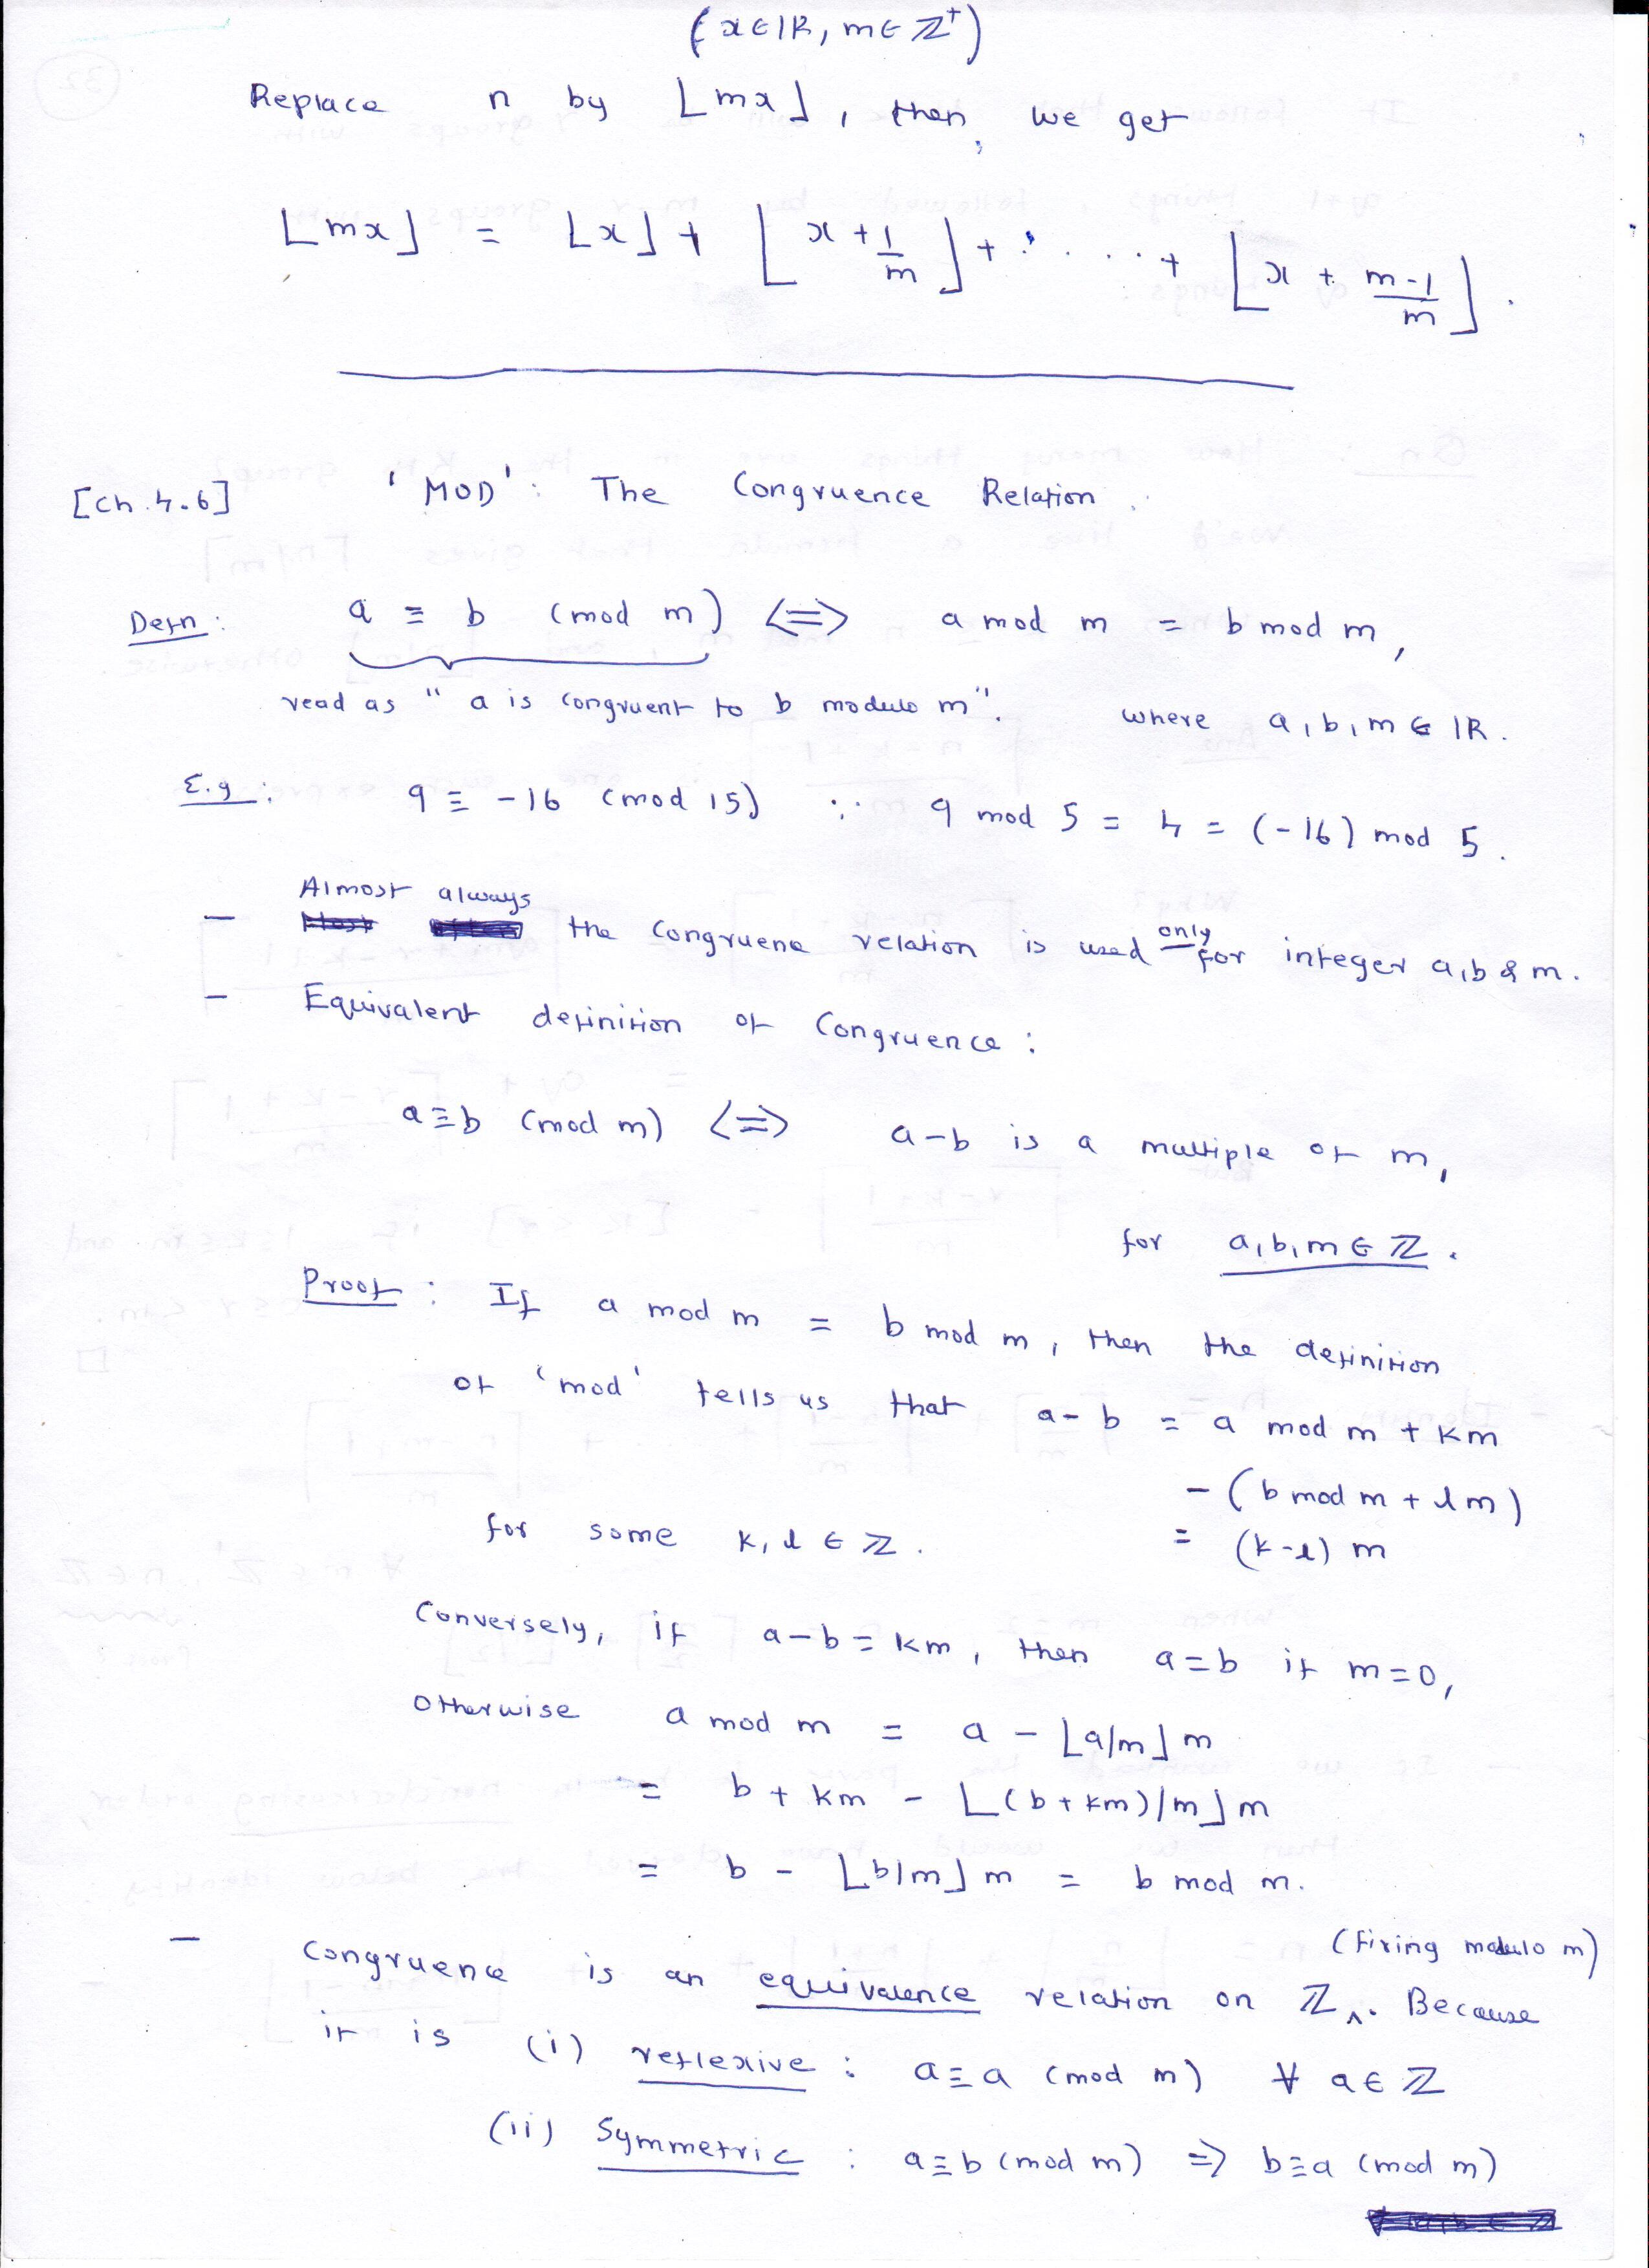 (x∈ℝ, m∈ℤ⁺)
Replace n by ⌊mx⌋, then, we get
⌊mx⌋ = ⌊x⌋ + ⌊x + 1/m⌋ + ..... + ⌊x + (m-1)/m⌋.
[Ch. 4.6] 'MOD': The Congruence Relation.
Defn: a ≡ b (mod m) <=> a mod m = b mod m,
read as "a is congruent to b modulo m". where a, b, m ∈ ℝ.
E.g: 9 ≡ -16 (mod 15) ∵ 9 mod 5 = 4 = (-16) mod 5.
Almost always
- the congruence relation is used only for integer a, b & m.
- Equivalent definition of congruence:
a≡b (mod m) <=> a-b is a multiple of m,
for a, b, m ∈ ℤ.
Proof: If a mod m = b mod m, then the definition
of 'mod' tells us that a-b = a mod m + km
- (b mod m + lm)
for some k, l ∈ ℤ. = (k-l) m
Conversely, if a-b = km, then a=b if m=0,
Otherwise a mod m = a - ⌊a/m⌋ m
= b + km - ⌊(b+km)/m⌋ m
= b - ⌊b/m⌋ m = b mod m.
(fixing modulo m)
- Congruence is an equivalence relation on ℤ‸. Because
it is (i) reflexive: a≡a (mod m) ∀ a∈ℤ
(ii) Symmetric: a≡b (mod m) => b≡a (mod m)